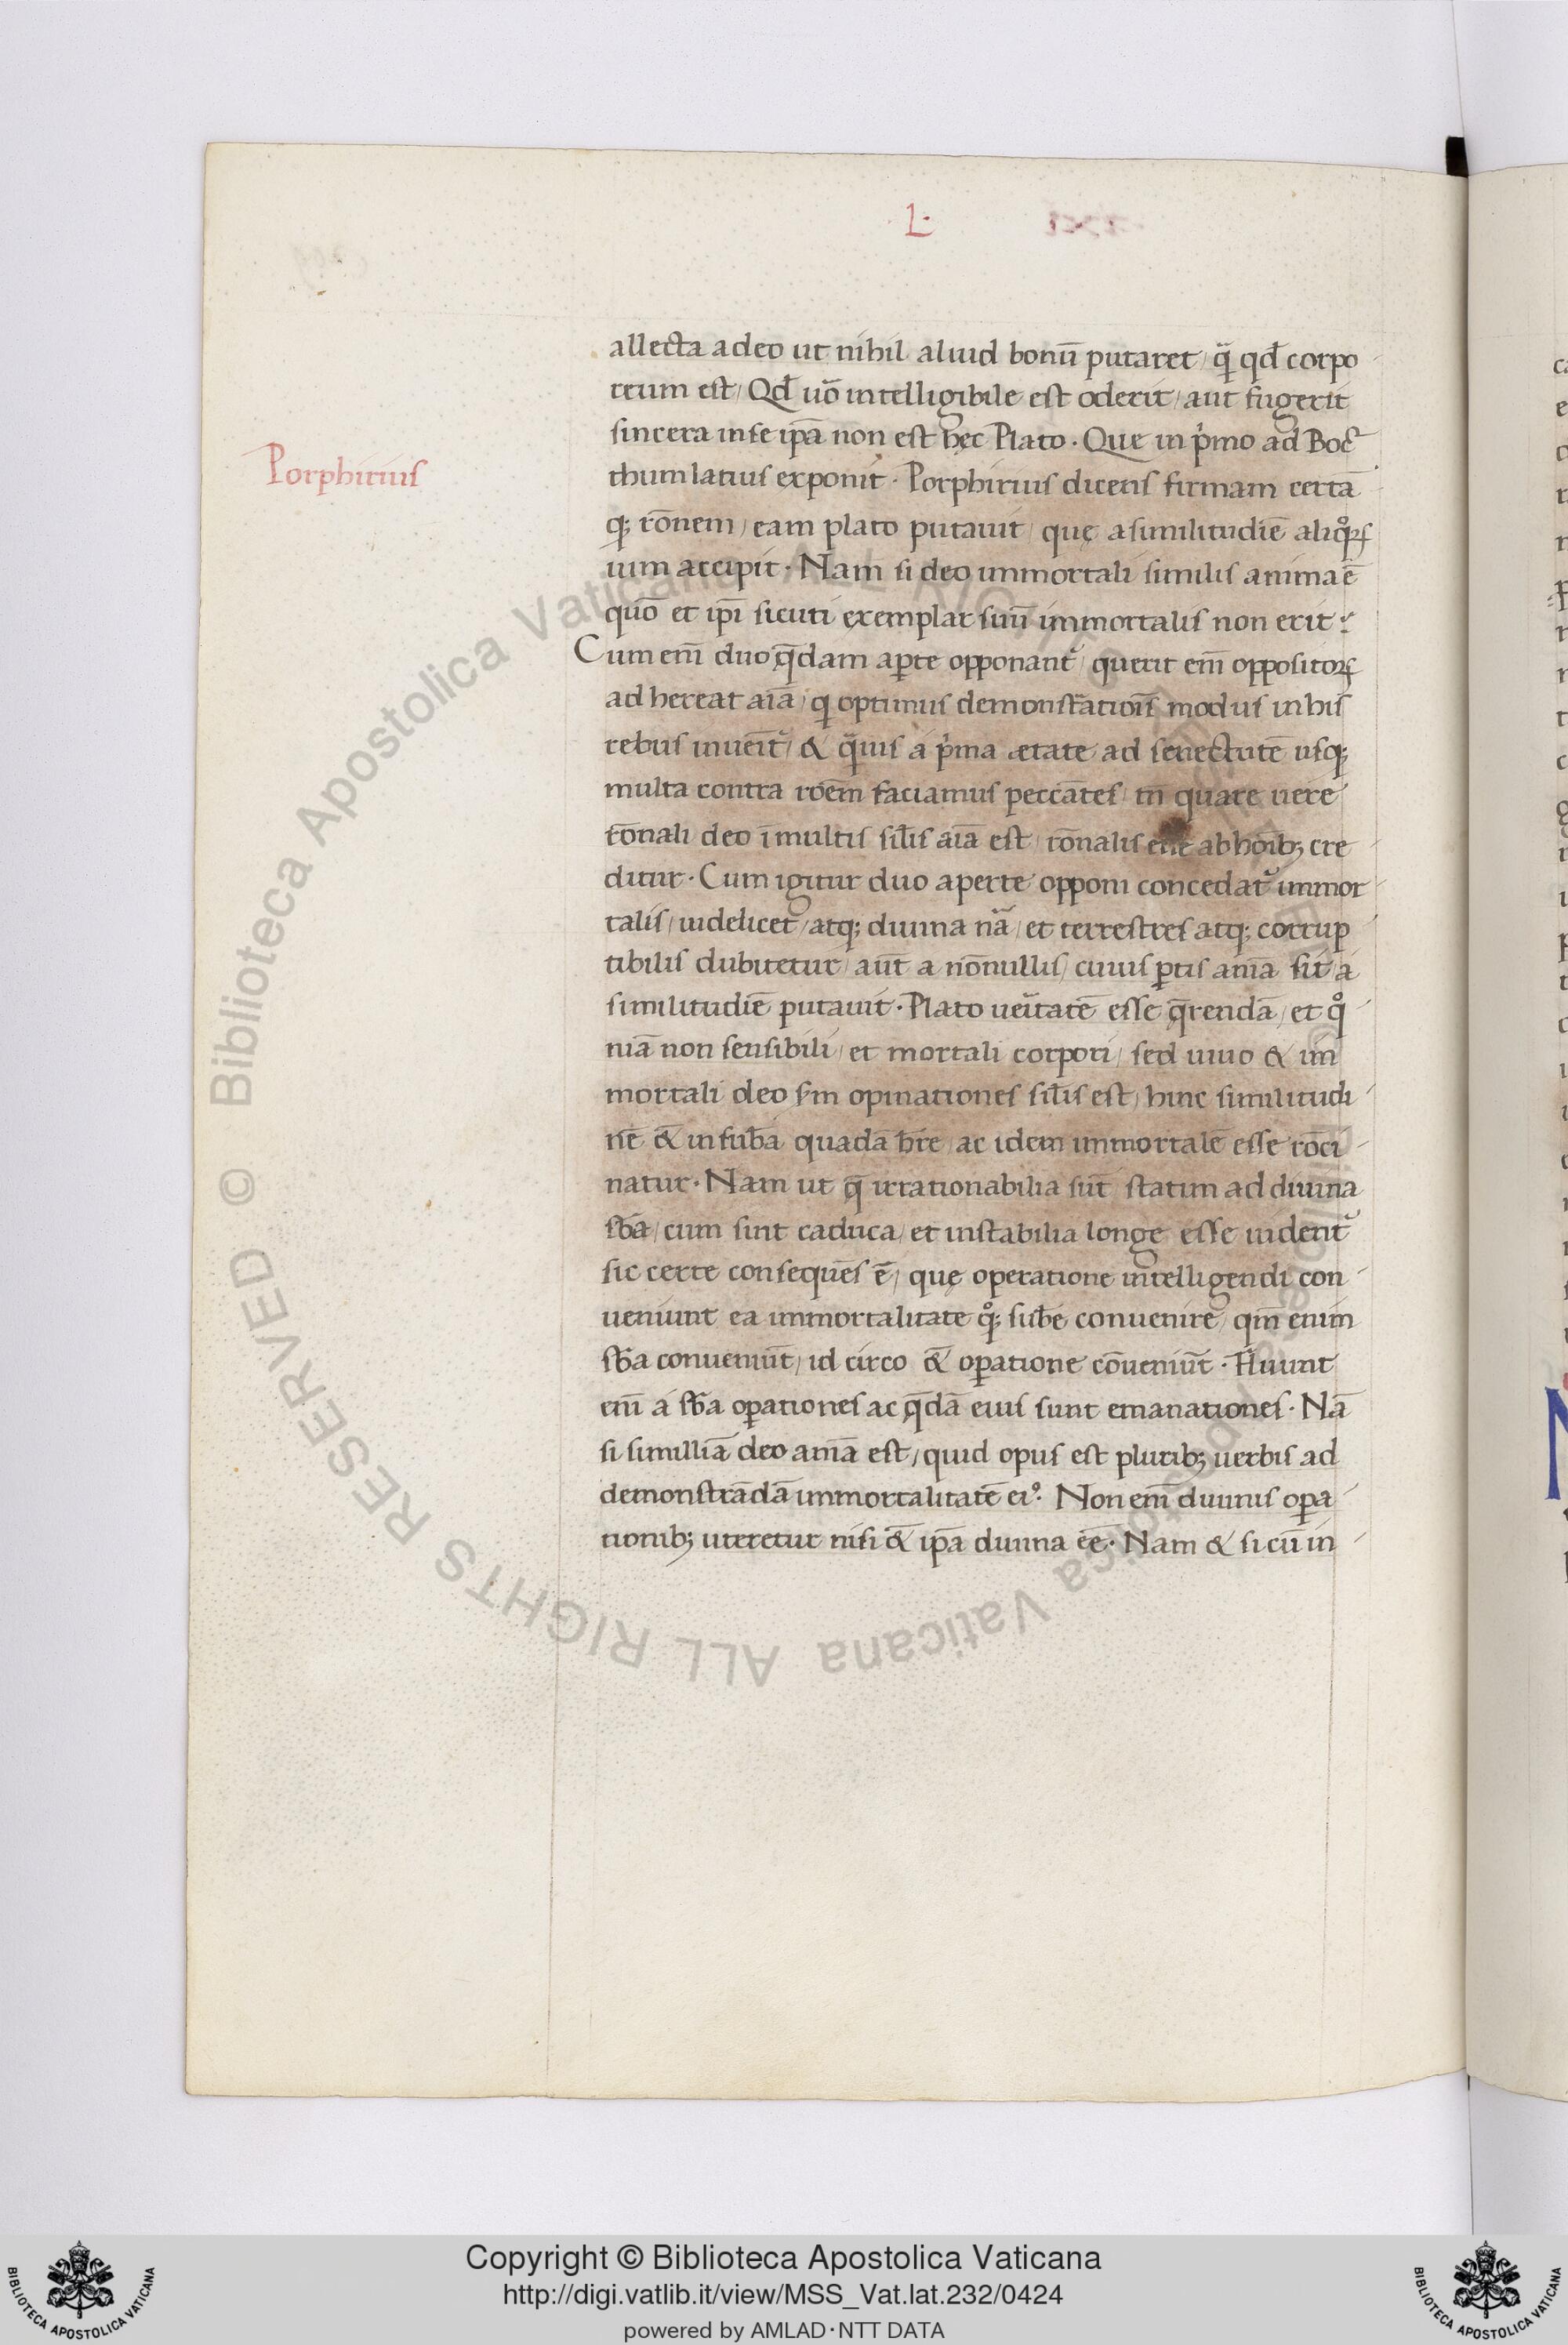 L·
Porphirius
allecta adeo ut nihil aliud bonū putaret / q̈ qđ corpo
reum est / Qđ uō intelligibile est oderit / aut fugerit
sincera in se ip̄a non est hęc Plato · Que in p̍mo ad Boe
thum latius exponit · Porphirius dicens firmam certā
q; rōnem / eam plato putauit / quę a similitudiē aliq̊ꝝ
uim accipit · Nam si deo immortali similis anima ē
quō et ip̄i sicuti exemplar suū immortalis non erit ?
Cum em̄ duo q̄dam aꝑte opponant᷑ querit em̄ oppositoꝝ
ad hereat aīā / q optimus demonstrātiois̄ modus in his
rebus inueīt᷑ / & q̈uis a p̍ma ætate ad senectutē usq;
multa contra roēm faciamus peccātes / tn̄ quare uere
rōnali deo ī multis sil̄is aīa est / rōnalis eē ab hoīb; cre
ditur · Cum igitur duo aperte opponi concedat᷑ immor
talis / uidelicet / atq; diuina nā / et terrestres atq; corrup
tibilis dubitetur / aut a nōnullis / cuius ꝑtis anīa sit a
similitudiē putauit · Plato ueītatē esse q̄rendā / et q̊
niā non sensibili / et mortali corpori / sed uiuo & im
mortali deo ẜm opinationes sil̄is est / hinc similitudi
nē & in sub̄a quadā h̄re / ac idem immortalē esse rōci
natur · Nam ut q̄ irrationabilia sūt statim ad diuina
sb̄a / cum sint caduca / et instabilia longe esse uident᷑
sic certe consequēs ē / quę operatione intelligendi con
ueniunt ea immortalitate q̊; sub̄e conuenire / qm̄ enim
sb̄a conueniūt / id circo & oꝑatione cōueniūt · Fluunt
em̄ a sb̄a oꝑationes ac q̄dā eius sunt emanationes · Nā
si simillīa deo anīa est / quid opus est plurib; uerbis ad
demonstrādā immortalitatē ei᾿ · Non em̄ diuinis oꝑa
tionib; uteretur nisi & ip̄a diuina eē · Nam & si cū in
© Biblioteca Apostolica Vaticana ALL RIGHTS RESERVED
Copyright © Biblioteca Apostolica Vaticana
http://digi.vatlib.it/view/MSS_Vat.lat.232/0424
powered by AMLAD·NTT DATA
BIBLIOTECA APOSTOLICA VATICANA
BIBLIOTECA APOSTOLICA VATICANA